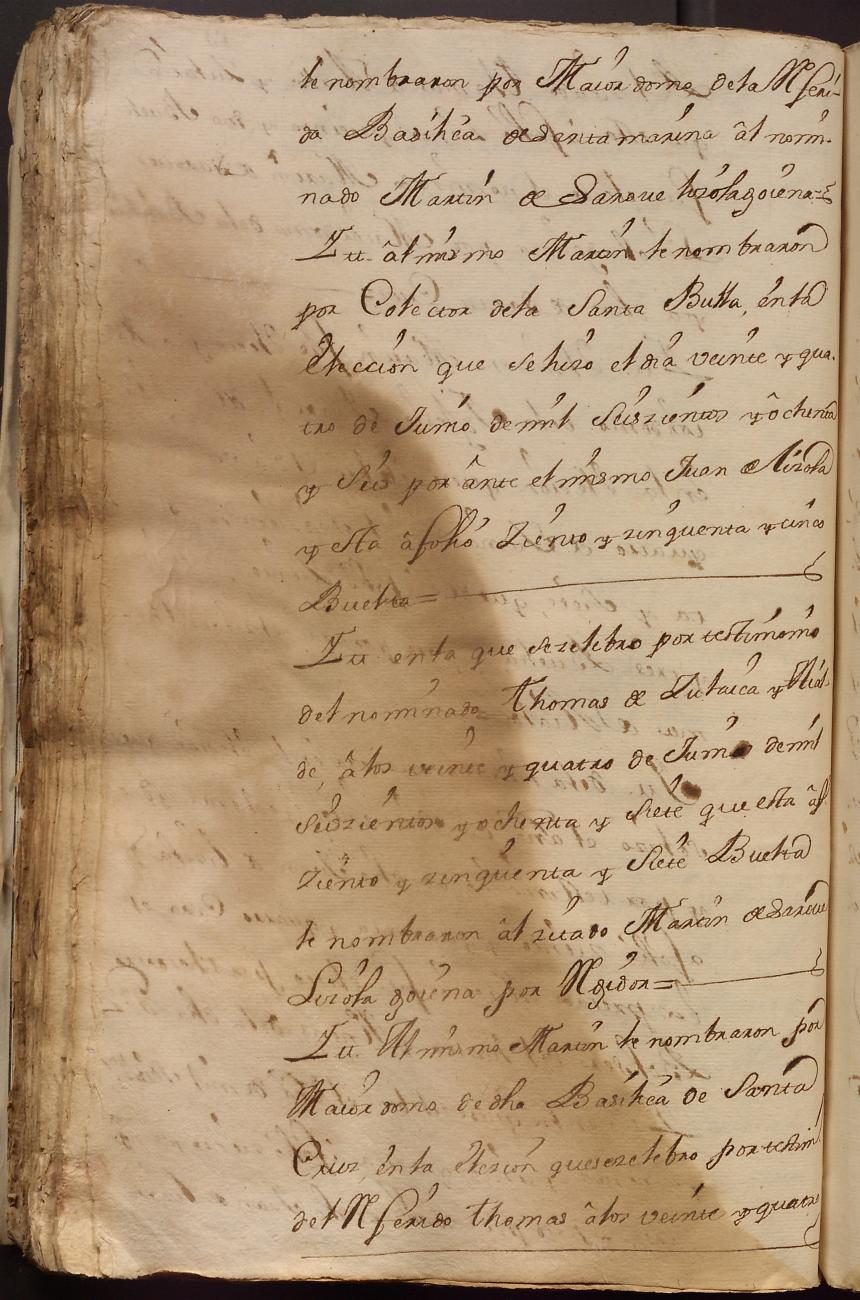 le nombraron por Maior domo de la Referi-
da Basilica de Santa marina âl nomi-
nado Martin de Sarove lizola goiena =
Itt. âl mismo Martin le nombraron
por Colector dela Santa Bulla, en la
Elección que se hizo el dia veinte y qua-
tro de Junio de mil Seiszientos y ôchenta
y Seis por ânte el mismo Juan de Lizola
y esta â folio Ziento y zinquenta y cinco
Buelta =
Itt. en la que se zelebro por testimonio
del nominado Thomas de Zulaica y
de, â los veinte y quatro de Junio de mil
Seiszientos y ochenta y Siete que esta â f.
ziento y zinquenta y Siete Buelta
le nombraron âl zitado Martin de Sarove
Lizola goiena por Regidor =
Itt. Al mismo Martin le nombraron por
Maior domo de dha Basilica de Santa
Cruz, en la Elezion que se zelebro por testim.
del Referido Thomas â los veinte y quatro